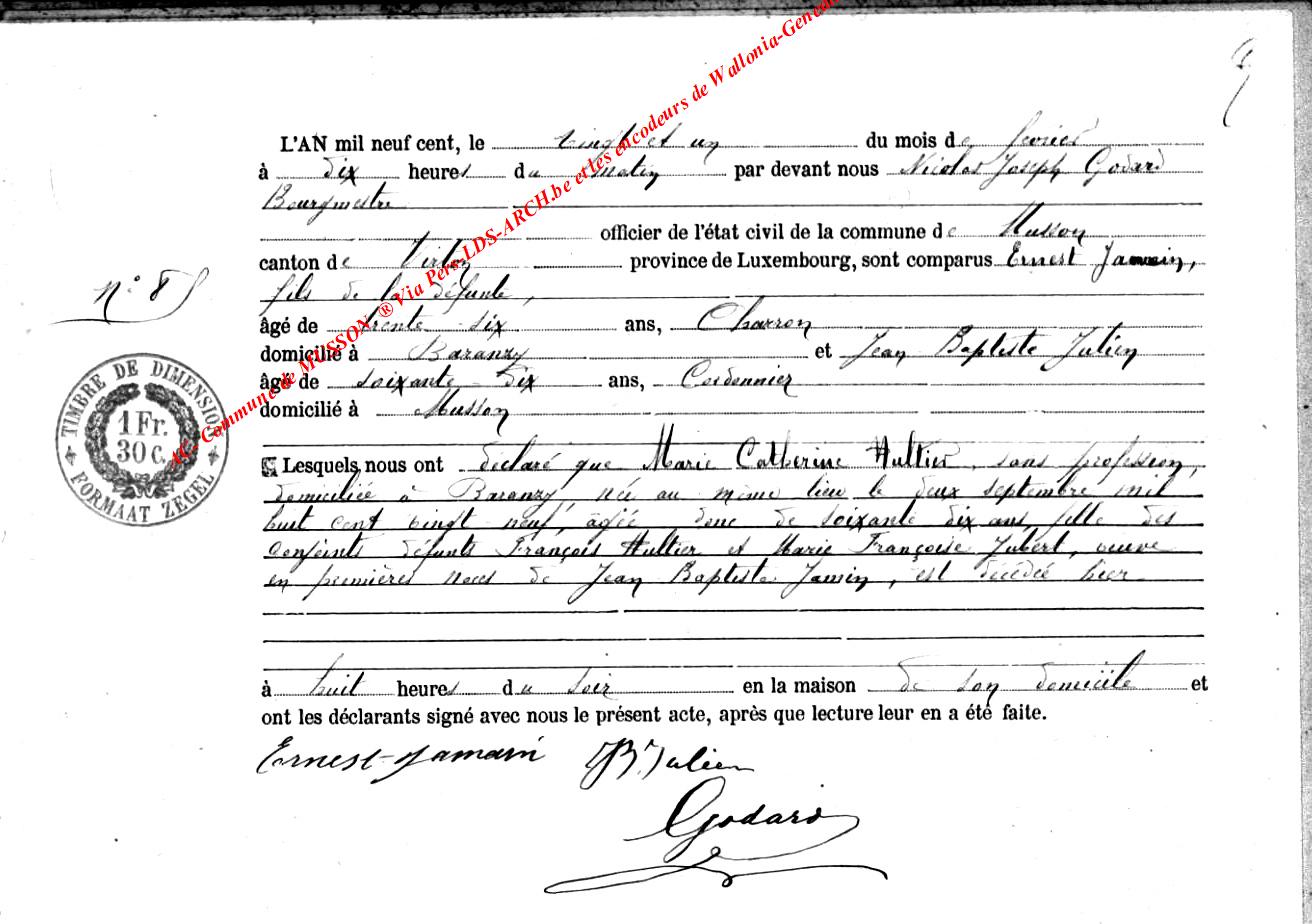 L'AN mil neuf cent, le vingt et un du mois de février
à dix heures du matin par devant nous Nicolas Joseph Godard
Bourgmestre
officier de l'état civil de la commune de Musson
canton de Virton province de Luxembourg, sont comparus Ernest Jamin,
fils de la défunte,
n° 8
âgé de trente six ans, Charron
domicilié à Baranzy et Jean Baptiste Julien
âgé de soixante dix ans, Cordonnier
domicilié à Musson
TIMBRE DE DIMENSION
1 Fr.
30 c.
FORMAAT ZEGEL
Lesquels nous ont déclaré que Marie Catherine Hultier, sans profession,
domiciliée à Baranzy, née au même lieu le deux septembre mil
huit cent vingt neuf, âgée donc de soixante dix ans, fille des
conjoints défunts François Hultier et Marie Françoise Jubert, veuve
en premières noces de Jean Baptiste Jamin, est décédée hier
à huit heures du soir en la maison de son domicile et
ont les déclarants signé avec nous le présent acte, après que lecture leur en a été faite.
Ernest Jamain JB. Julien
Godard
Commune de MUSSON ® Via Pers-LDS-ARCH.be et les encodeurs de Wallonia-Geneal